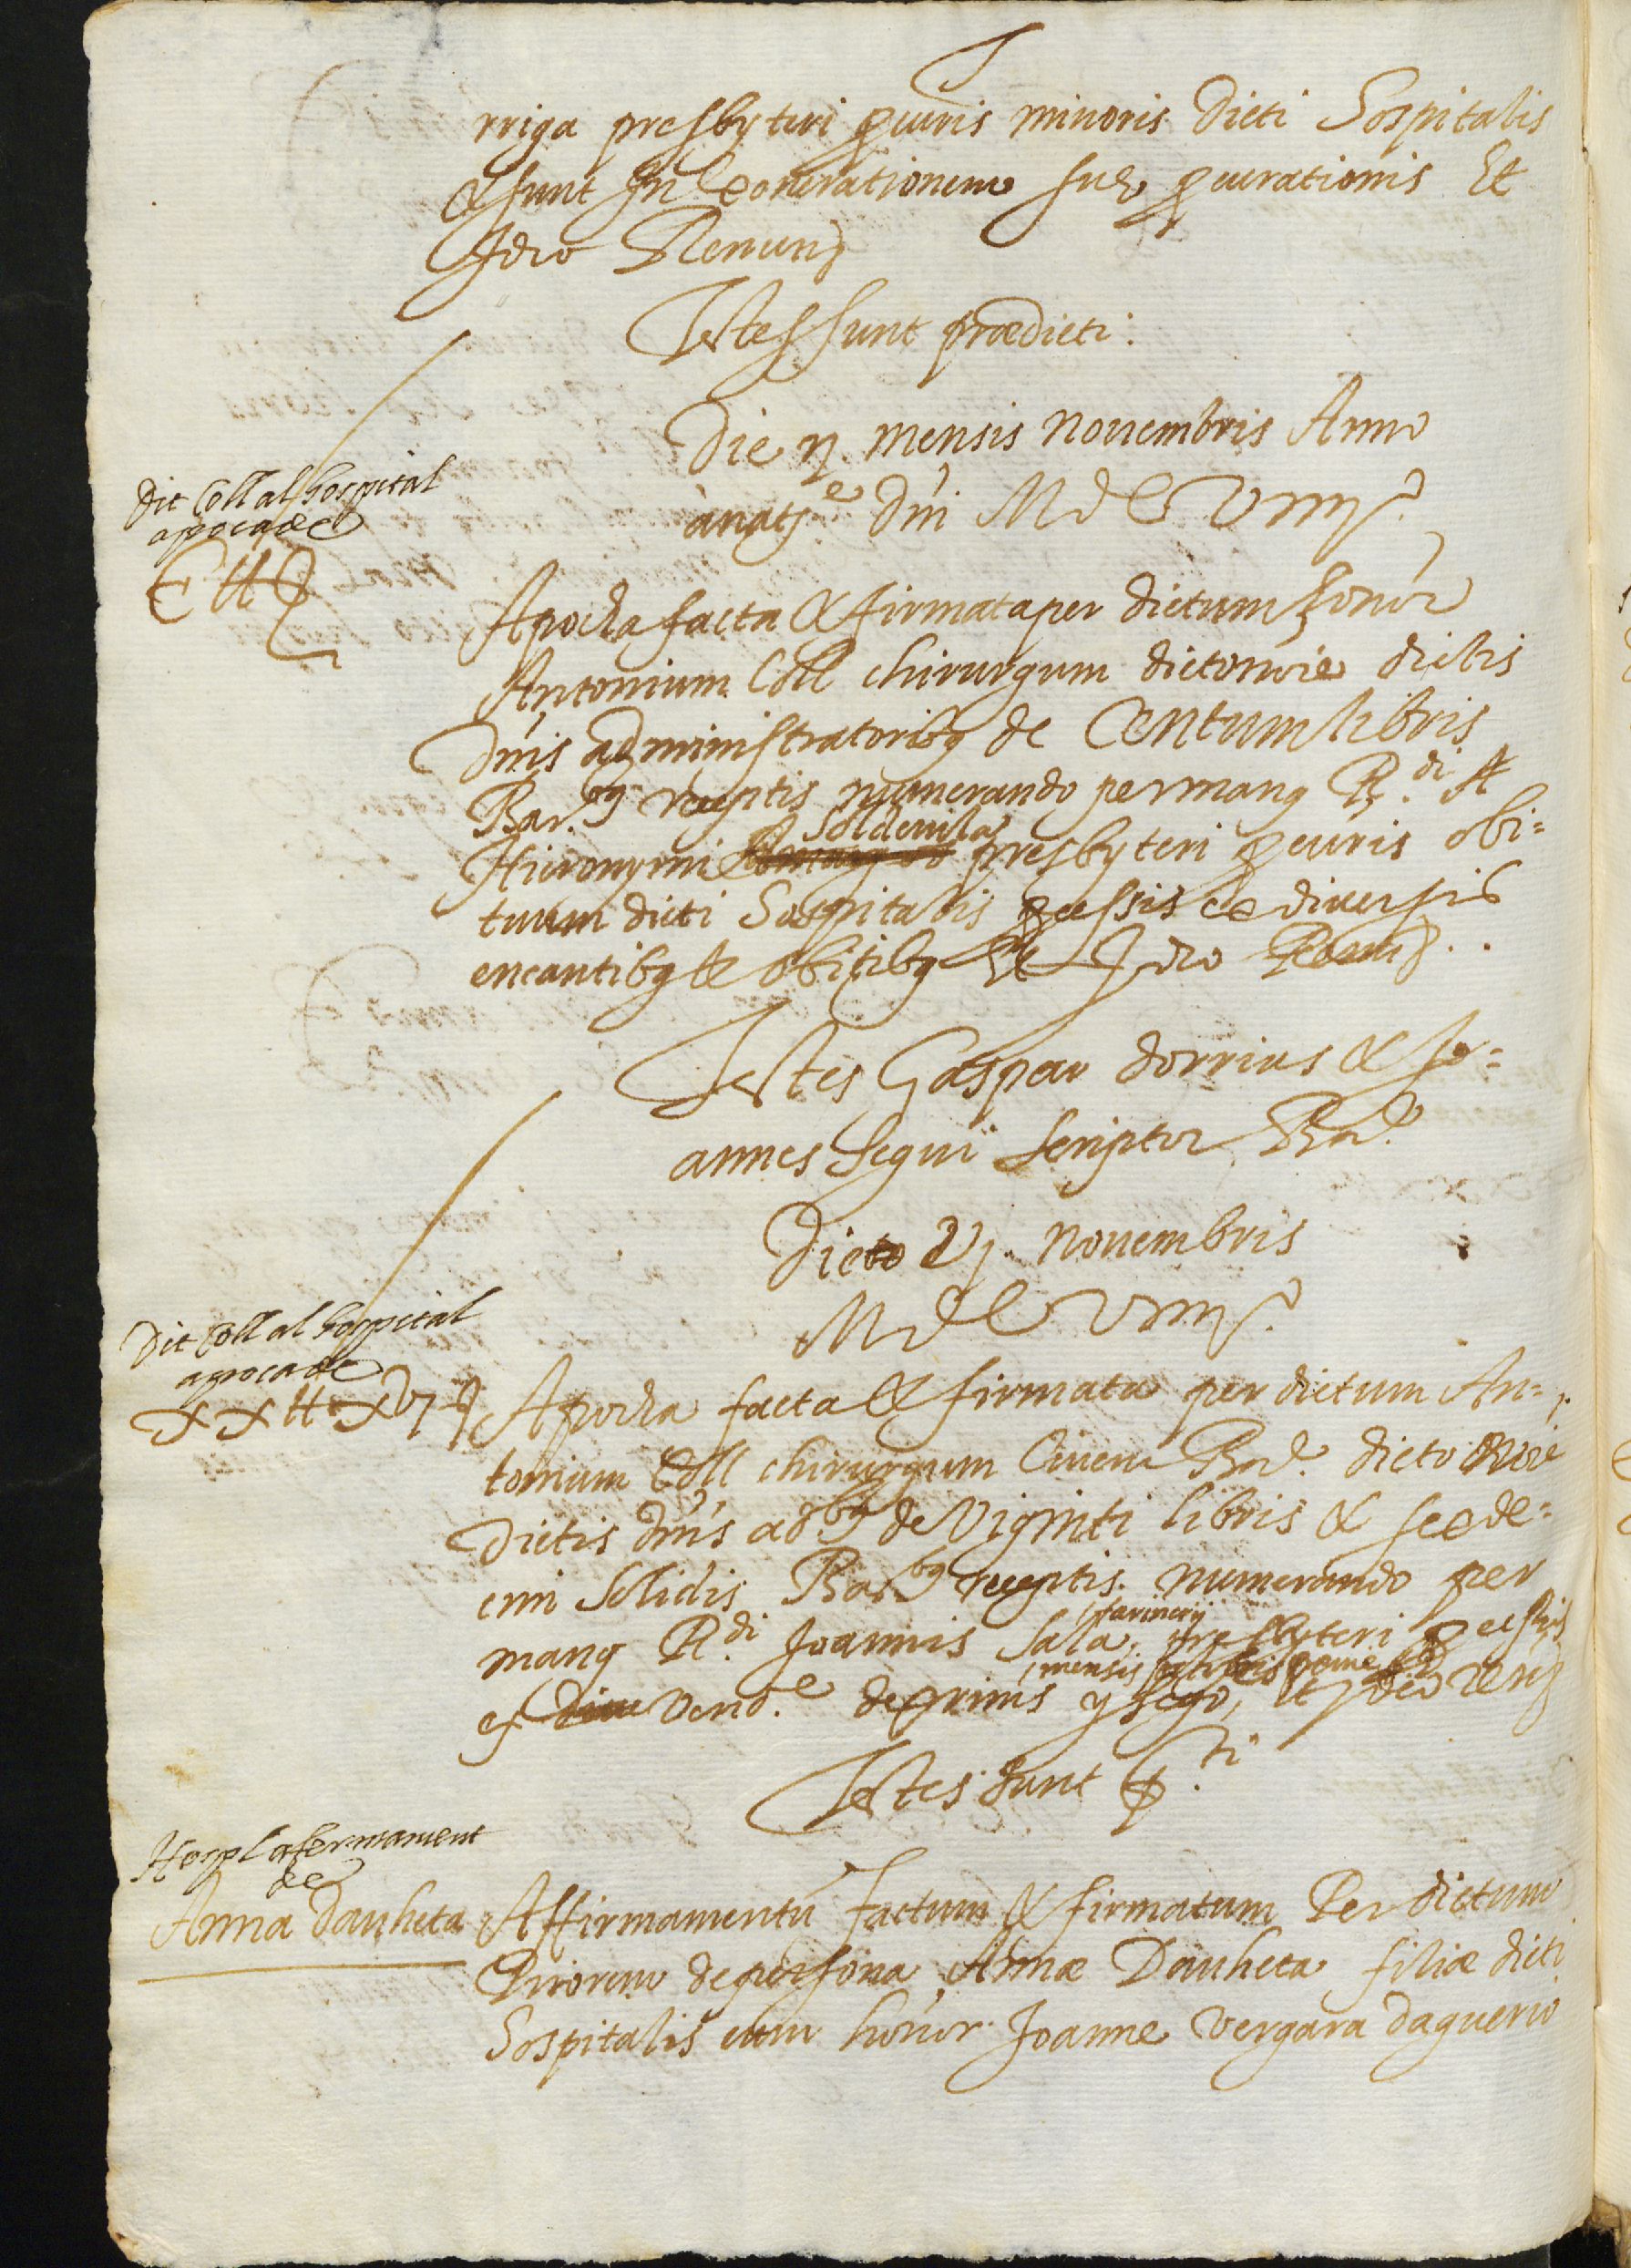 rriga presbyteri procuris minoris dicti Hospitalis
& sunt in exonerationem suę procurationis Et
Ideo Renun
Testes sunt prædicti.
Die ij. mensis nouembris Anno
a nat.e Dni M d L viiij.
Dit Coll al hospital
apoca de
C ll
Apocha facta & firmata per dictum honor
Antonium Coll chirurgum dicto noie dictis
Dnis administratoribus de Centum libris
Bar.bus receptis numerando per manus R.di
Hieronymi Soldeuila presbyteri procuris obi=
tuum dicti Hospitalis processis ex diuersis
encantibus et obitibus Et Ideo Renun.
Testes Gaspar dorrius & Jo=
annes segui scriptor Bar.
Dicto ij. nouembris
M d L viiij.
Dit Coll al hospital
apoca de
xx ll xvj
Apocha facta & firmata per dictum An=
tonium Coll chirurgum Ciuem Bar. dicto noie
Dictis dnis ad.bus de Viginti libris & sexde=
cim Solidis Bar.bus receptis numerando per
manus R.di Joannis Sala farinerij presbyteri processis
ex vend.e de prims y sego, mensis Et ideo ren
Testes sunt p.ti
Hospl afermament
de
Anna Dauheta
Affirmamentu factum & firmatum Per dictum
Priorem de persona Annæ Dauheta filiæ dicti
Hospitalis cum honor. Joanne vergara daguerio